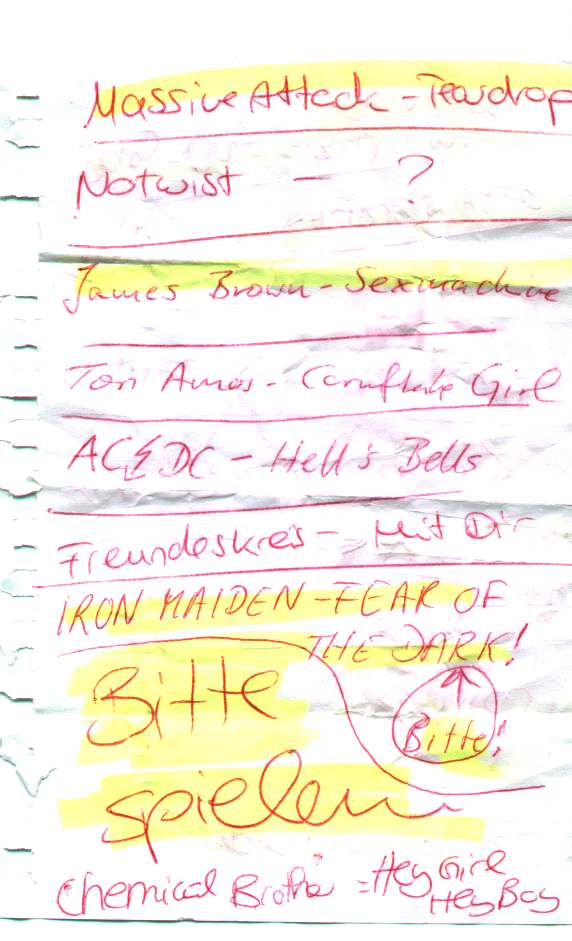 Massive Attack - Teardrop
Notwist - ?
James Brown - Sexmachine
Tori Amos - Cornflake Girl
AC⚡DC - Hell's Bells
Freundeskreis - Mit Dir
IRON MAIDEN - FEAR OF
THE DARK!
Bitte
Bitte!
spielen
Chemical Brothe - Hey Girl
Hey Boy